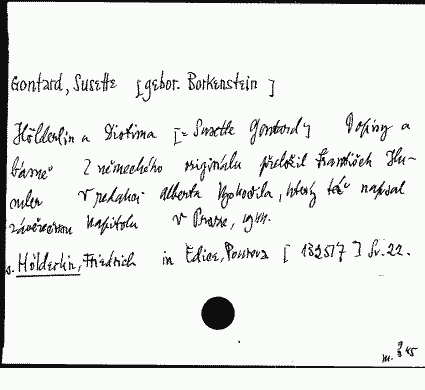 Gontard, Susette [gebor. Borkenstein]
Hölderlin a Diotima [= Susette Gontard] Dopisy a
básně Z německého originálu přeložil František Hu-
V redakci Alberta Vyskočila, který též napsal
závěrečnou kapitolu V Praze, 1944.
s. Hölderlin, Friedrich in Edice, Poutova [182517] Sv. 22.